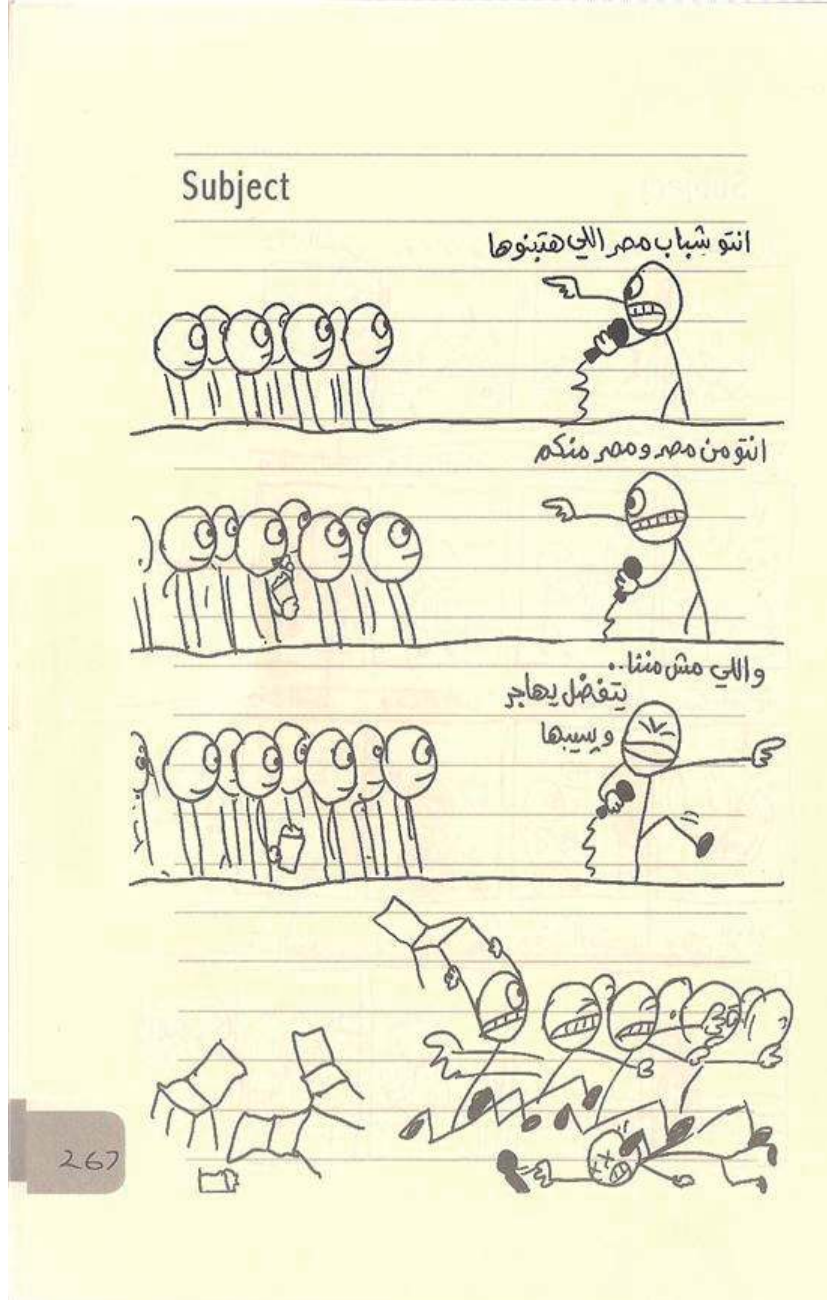 Subject
انتو شباب مصر اللي هتبنوها
انتو من مصر و مصر منكم
و اللي مش مننا..
يتفضل يهاجر
ويسيبها
267